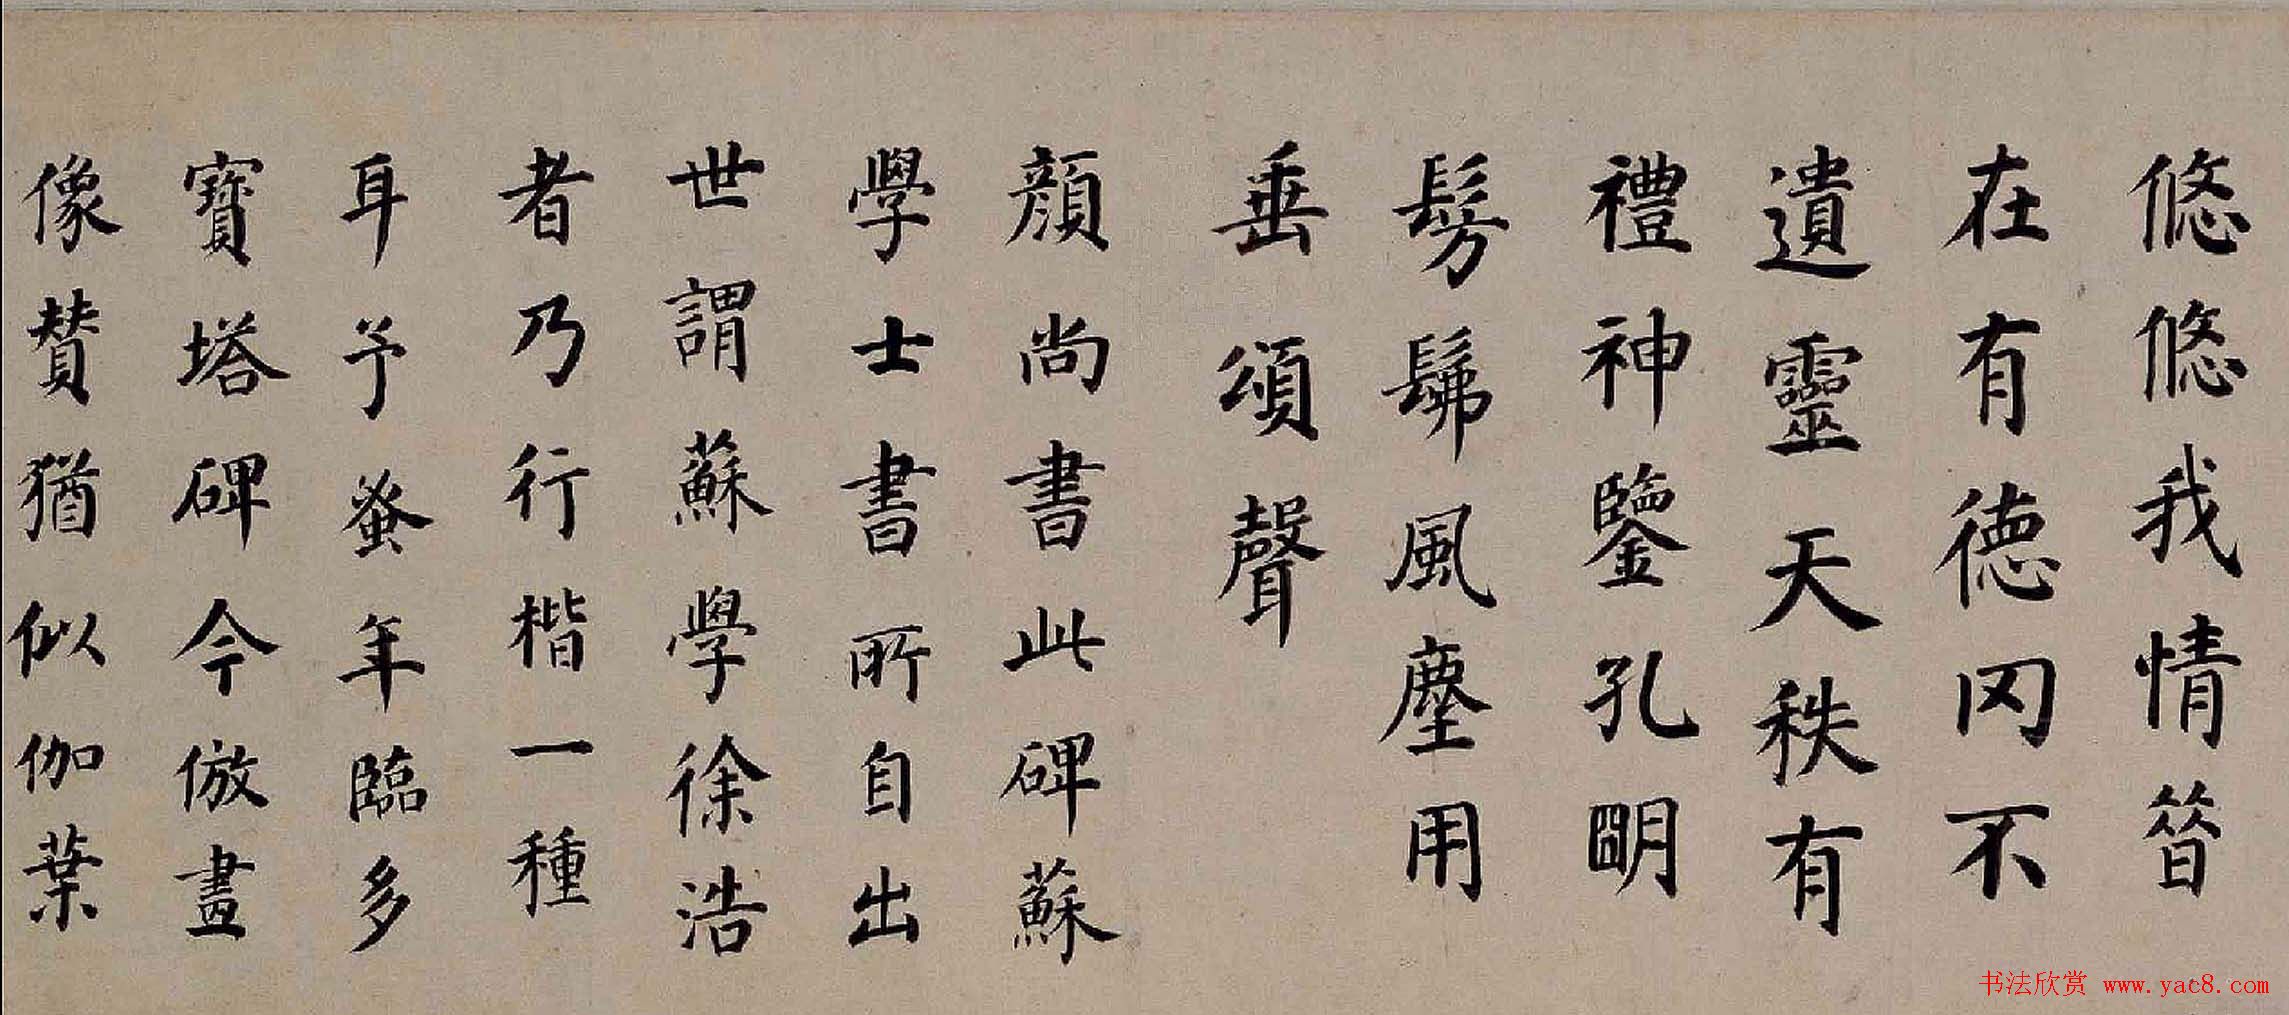 悠悠我情昝
在有德冈不
遺靈天秩有
禮神鑒孔明
髣髴風塵用
垂頌聲
顏尚書此碑蘇
學士書所自出
世謂蘇學徐浩
者乃行楷一種
耳予蚤年臨多
寶塔碑今倣畫
像贊猶似伽葉
书法欣赏 www.yac8.com